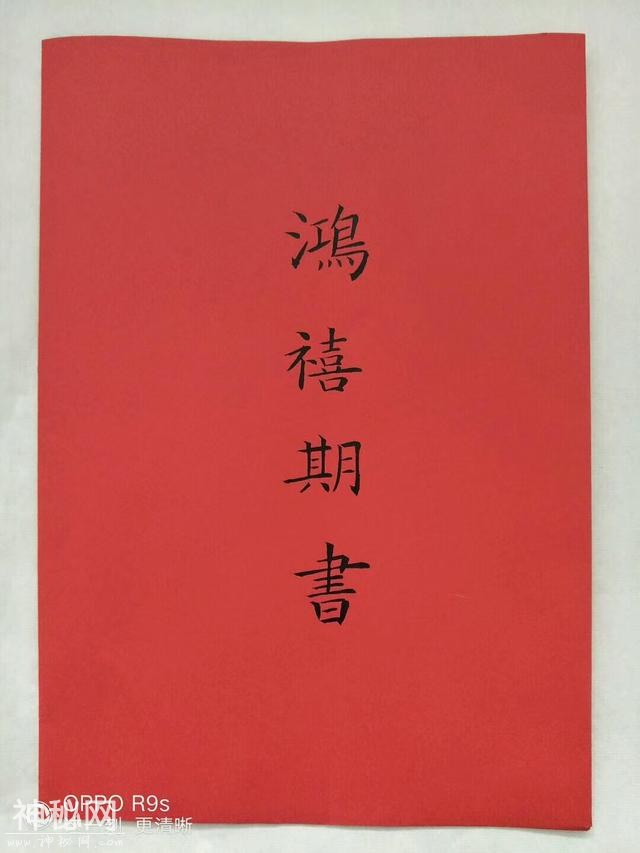 鴻禧期書
OPPO R9s
更清晰
神秘网
www.神秘网.com